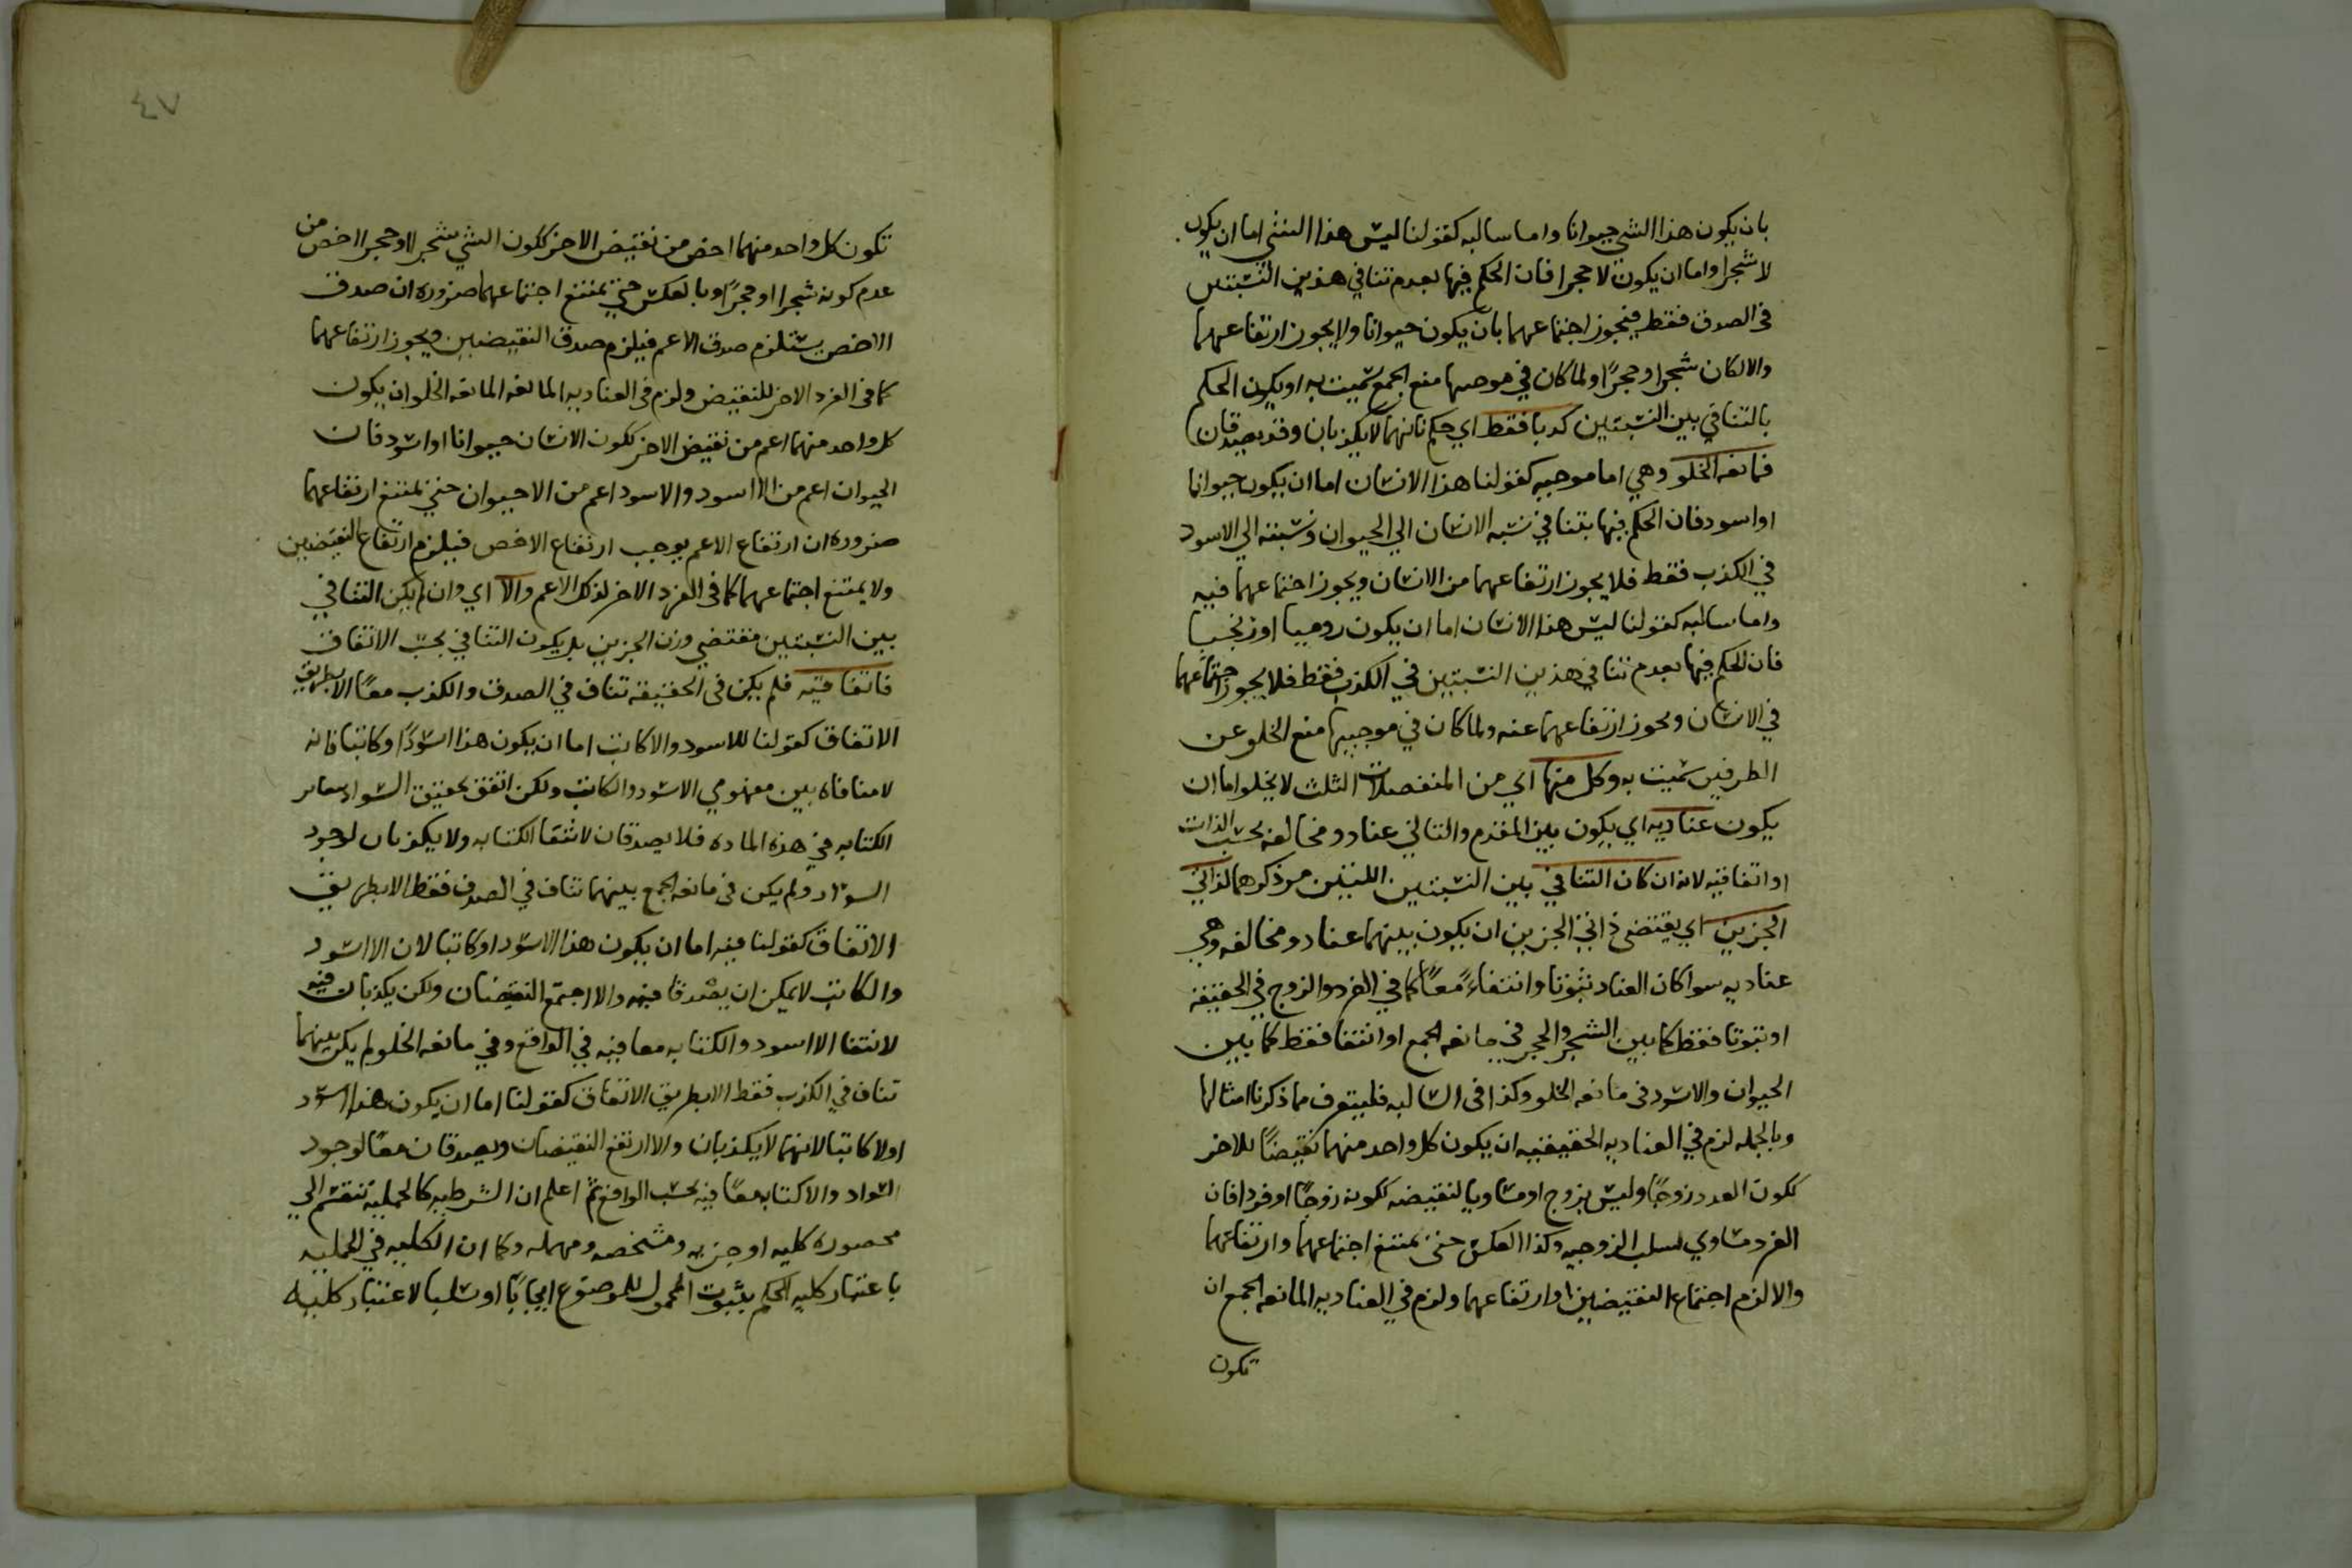 بان يكون هذا الشي حيوانا واما سالبه كقولنا ليس هذا الشي اما ان يكون
لا شجرا واما ان يكون لا حجرا فان الحكم فيها بعدم تنافي هذين النسبتين
في الصدق فقط فيجوز اجتماعهما بان يكون حيوانا ولا يجوز ارتفاعهما
والا لكان شجرا وحجرًا ولما كان في موجبها منع الجمع سميت به او يكون الحكم
بالتنافي بين النسبتين كدبا فقط اي حكم بانهما لا يكذبان وقد يصدقان
فمانعه الخلو وهي اما موجبه كقولنا هذا الانسان اما ان يكون حيوانا
او اسود فان الحكم فيها بتنافي نسبه الانسان الي الحيوان ونسبته الي الاسود
في الكذب فقط فلا يجوز ارتفاعهما من الانسان ويجوز اجتماعهما فيه
واما سالبه كقولنا ليس هذا الانسان اما ان يكون روميا او زنجيا
فان الحكم فيها بعدم تنافي هذين النسبتين في الكذب فقط فلا يجوز اجتماعهما
في الانسان ويجوز ارتفاعهما عنه ولما كان في موجبيها منع الخلو عن
الطرفين سميت به وكل منها اي من المنفصلات الثلث لا يخلو اما ان
يكون عناديه اي يكون بين المقدم والتالي عناد ومخالفه بحسب الذات
او اتفاقيه لانه ان كان التنافي بين النسبتين اللتين مر ذكرهما لذاتي
الجزين اي يقتضي ذاتي الجزين ان يكون بينهما عناد ومخالفه وهي
عناديه سوا كان العناد ثبوتا وانتفاءً معًا كما في الفرد والزوج في الحقيقه
او ثبوتا فقط كما بين الشجر والحجر في مانعه الجمع او انتفا فقط كما بين
الحيوان والاسود في مانعه الخلو وكذا في السالبه فليتعرف مما ذكرنا امثالها
وبالجمله لزم في العناديه الحقيقيه ان يكون كل واحد منهما نقيضًا للاخر
ككون العدد زوجًا وليس بزوج او مساويا لنقيضه ككونه زوجًا او فردا فان
الفرد مساوي لسلب الزوجيه وكذا العكس حتى يمتنع اجتماعهما وارتفاعهما
والا لزم اجتماع النقيضين او ارتفاعهما ولزم في العناديه المانعه الجمع ان
تكون
٤٧
تكون كل واحد منهما اخص من نقيض الاخر ككون الشي شجرا او حجرا اخص من
عدم كونه شجرا او حجرًا وبالعكس حتى يمتنع اجتماعهما ضروره ان صدق
الاخص يستلزم صدق الاعم فيلزم صدق النقيضين ويجوز ارتفاعهما
كما في الفرد الاخر للنقيض ولزم في العناديه المانعه المانعه الخلو ان يكون
كل واحد منهما اعم من نقيض الاخر ككون الانسان حيوانا او اسود فان
الحيوان اعم من الا اسود والاسود اعم من الا حيوان حتى يمتنع ارتفاعهما
ضروره ان ارتفاع الاعم يوجب ارتفاع الاخص فيلزم ارتفاع النقيضين
ولا يمتنع اجتماعهما كما في الفرد الاخر لذلك الاعم والا اي وان لم يكن التنافي
بين النسبتين مقتضي ذات الجزين بل يكون التنافي بحسب الاتفاق
فاتفاقيه فلم يكن في الحقيقه تناف في الصدق والكذب معًا الا بطريق
الاتفاق كقولنا للاسود والا كاتب اما ان يكون هذا اسودًا وكاتبا فانه
لا منافاه بين مفهومي الاسود والكاتب ولكن اتفق تحقيق السواد
الكتابه في هذه الماده فلا يصدقان لانتفا الكتابه ولا يكذبان لوجود
السواد ولم يكن في مانعه الجمع بينهما تناف في الصدق فقط الا بطريق
الاتفاق كقولنا فيه اما ان يكون هذا الا اسود او كاتبا لان الا اسود
والكاتب لا يمكن ان يصدقا فيه والا اجتمع النقيضان ولكن يكذبان فيه
لانتفا الا اسود والكتابه معا فيه في الواقع وفي مانعه الخلو لم يكن بينهما
تناف في الكذب فقط الا بطريق الاتفاق كقولنا اما ان يكون هذا اسود
او لا كاتبا لانهما لا يكذبان والا ارتفع النقيضان ويصدقان معًا لوجود
السواد والا كتابه معًا فيه بحسب الواقع ثم اعلم ان الشرطيه كالحمليه تنقسم الي
محصوره كليه او جزيه ومشخصه ومهمله وكما ان الكليه في الحمليه
باعتبار كليه الحكم بثبوت المحمول للموضوع ايجابًا او سلبا لا عتبار كليه